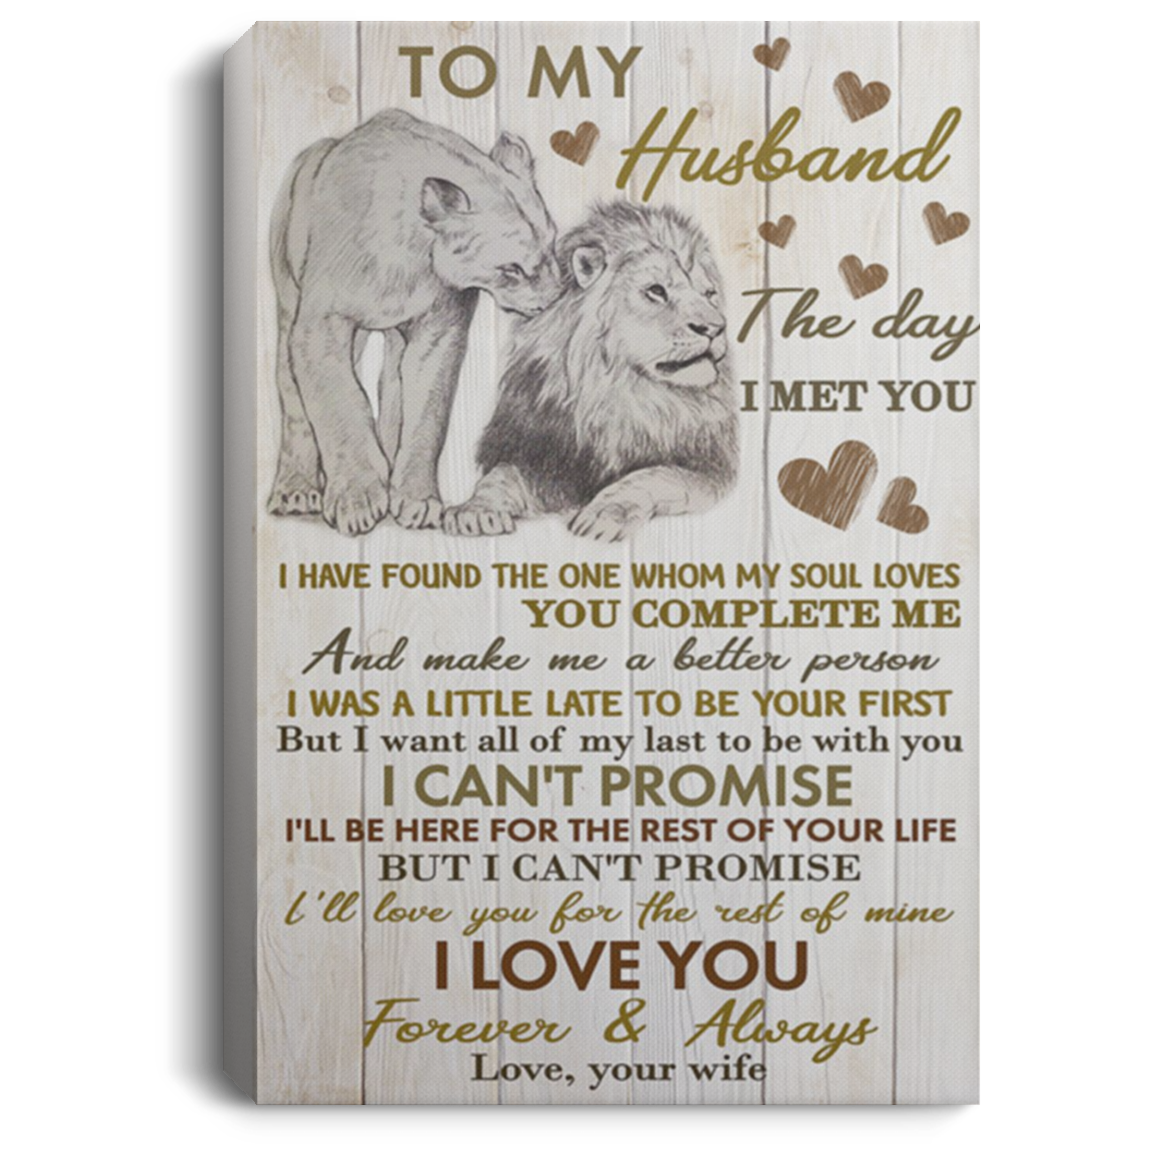 TO MY
Husband
The day
I MET YOU
I HAVE FOUND THE ONE WHOM MY SOUL LOVES
YOU COMPLETE ME
And make me a better person
I WAS A LITTLE LATE TO BE YOUR FIRST
But I want all of my last to be with you
I CAN'T PROMISE
I'LL BE HERE FOR THE REST OF YOUR LIFE
BUT I CAN'T PROMISE
I'll love you for the rest of mine
I LOVE YOU
Forever & Always
Love, your wife